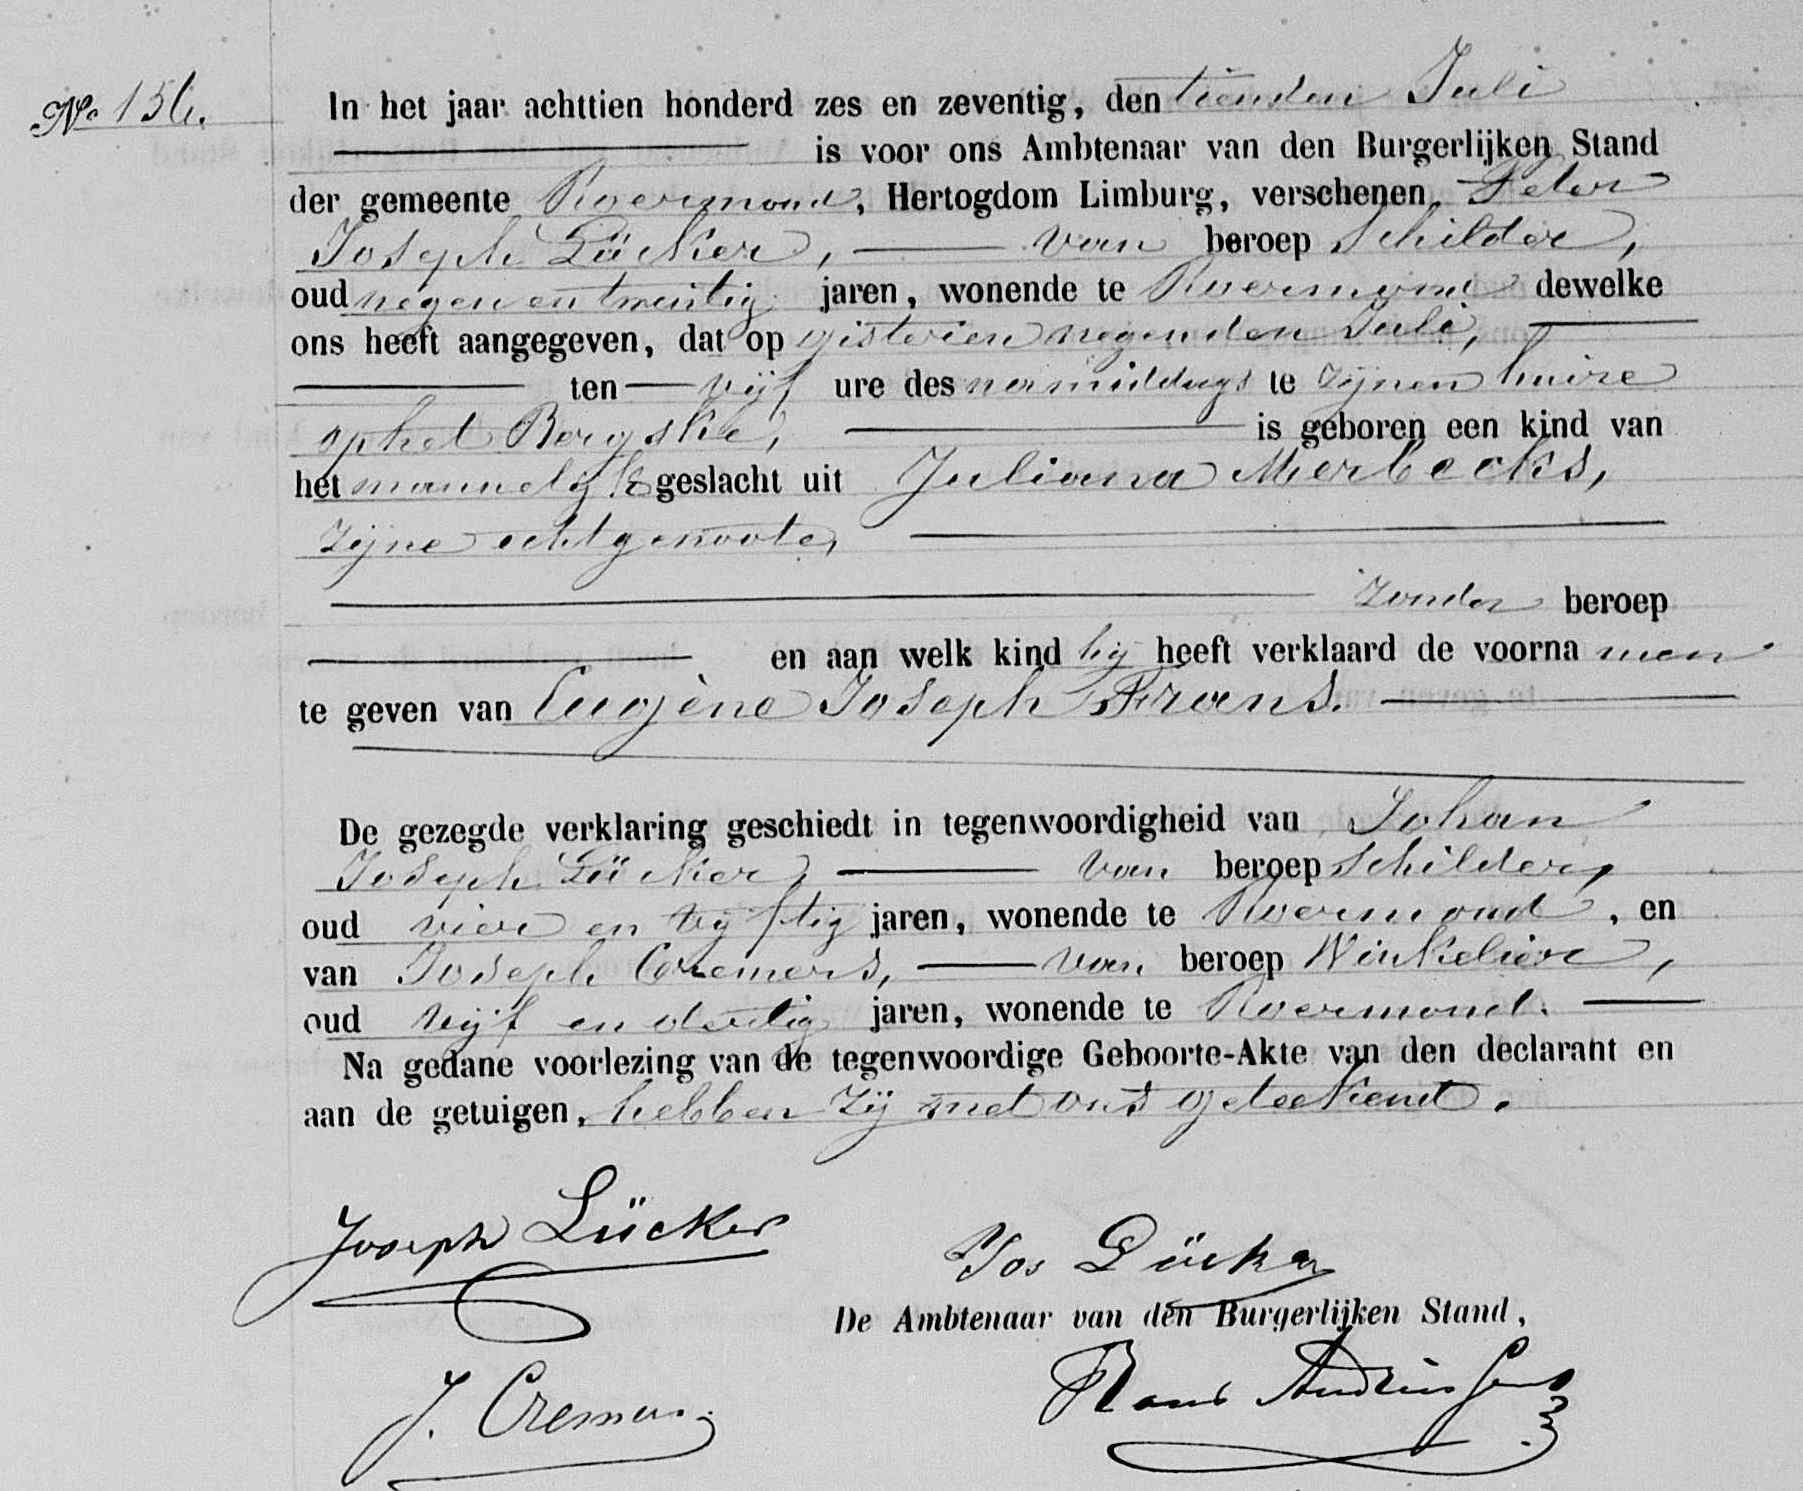 No 156.
In het jaar achttien honderd zes en zeventig, den tienden Juli
is voor ons Ambtenaar van den Burgerlijken Stand
der gemeente Roermond, Hertogdom Limburg, verschenen Peter
Joseph Lücker, van beroep schilder,
oud negen en twintig jaren, wonende te Roermond dewelke
ons heeft aangegeven, dat op gisteren negenden Juli,
ten vijf ure des namiddags te zijnen huize
op het Bergske, is geboren een kind van
het mannelijk geslacht uit Juliana Merbecks,
zijne echtgenoote,
zonder beroep
en aan welk kind hij heeft verklaard de voorna men
te geven van Eugène Joseph Frans.
De gezegde verklaring geschiedt in tegenwoordigheid van Johan
Joseph Lücker, van beroep schilder,
oud vier en vijftig jaren, wonende te Roermond, en
van Joseph Cremers, van beroep Winkelier,
oud vijf en dertig jaren, wonende te Roermond.
Na gedane voorlezing van de tegenwoordige Geboorte-Akte van den declarant en
aan de getuigen, hebben zij met ons geteekend.
Joseph Lücker
Jos Lücker
De Ambtenaar van den Burgerlijken Stand,
J. Cremers